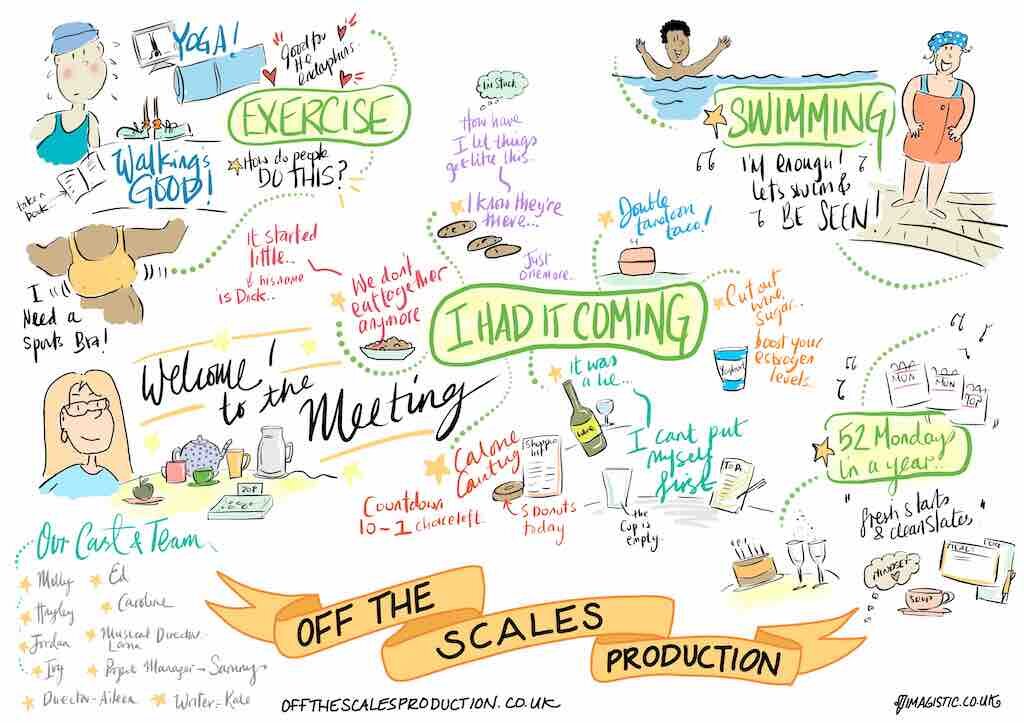 YOGA!
Good for
the
endorphins
EXERCISE
Walking's
GOOD!
How do people
DO THIS?
take a
book
I
Need a
Sports Bra!
It started
little..
his name
is Dick..
We don't
eat together
anymore
I'm stuck
How have
I let things
get like this..
I know they're
there...
Just
one more..
Double
tandoori
taco!
I HAD IT COMING
Cut out
wine,
sugar...
boost your
estrogen
levels...
Yoghurt
SWIMMING
"I'm enough!
Let's swim &
BE SEEN!"
Welcome!
to the
Meeting
It was
a lie...
Wine
I can't put
myself
first
TO DO
Calorie
Counting
Shopping
list
Countdown
10-1 choc left
5 Donuts
today
the
cup is
empty.
MON
MON
52 Mondays
in a year..
"fresh starts
& clean slates"
MINDSET
SOUP
Our Cast & Team
Molly
Ed
Hayley
Caroline
Jordan
Musical Director
Lorna
Ivy
Project Manager - Sammy
Director - Aileen
Writer - Kate
OFF THE
SCALES
PRODUCTION
OFFTHESCALESPRODUCTION.CO.UK
IMAGISTIC.CO.UK